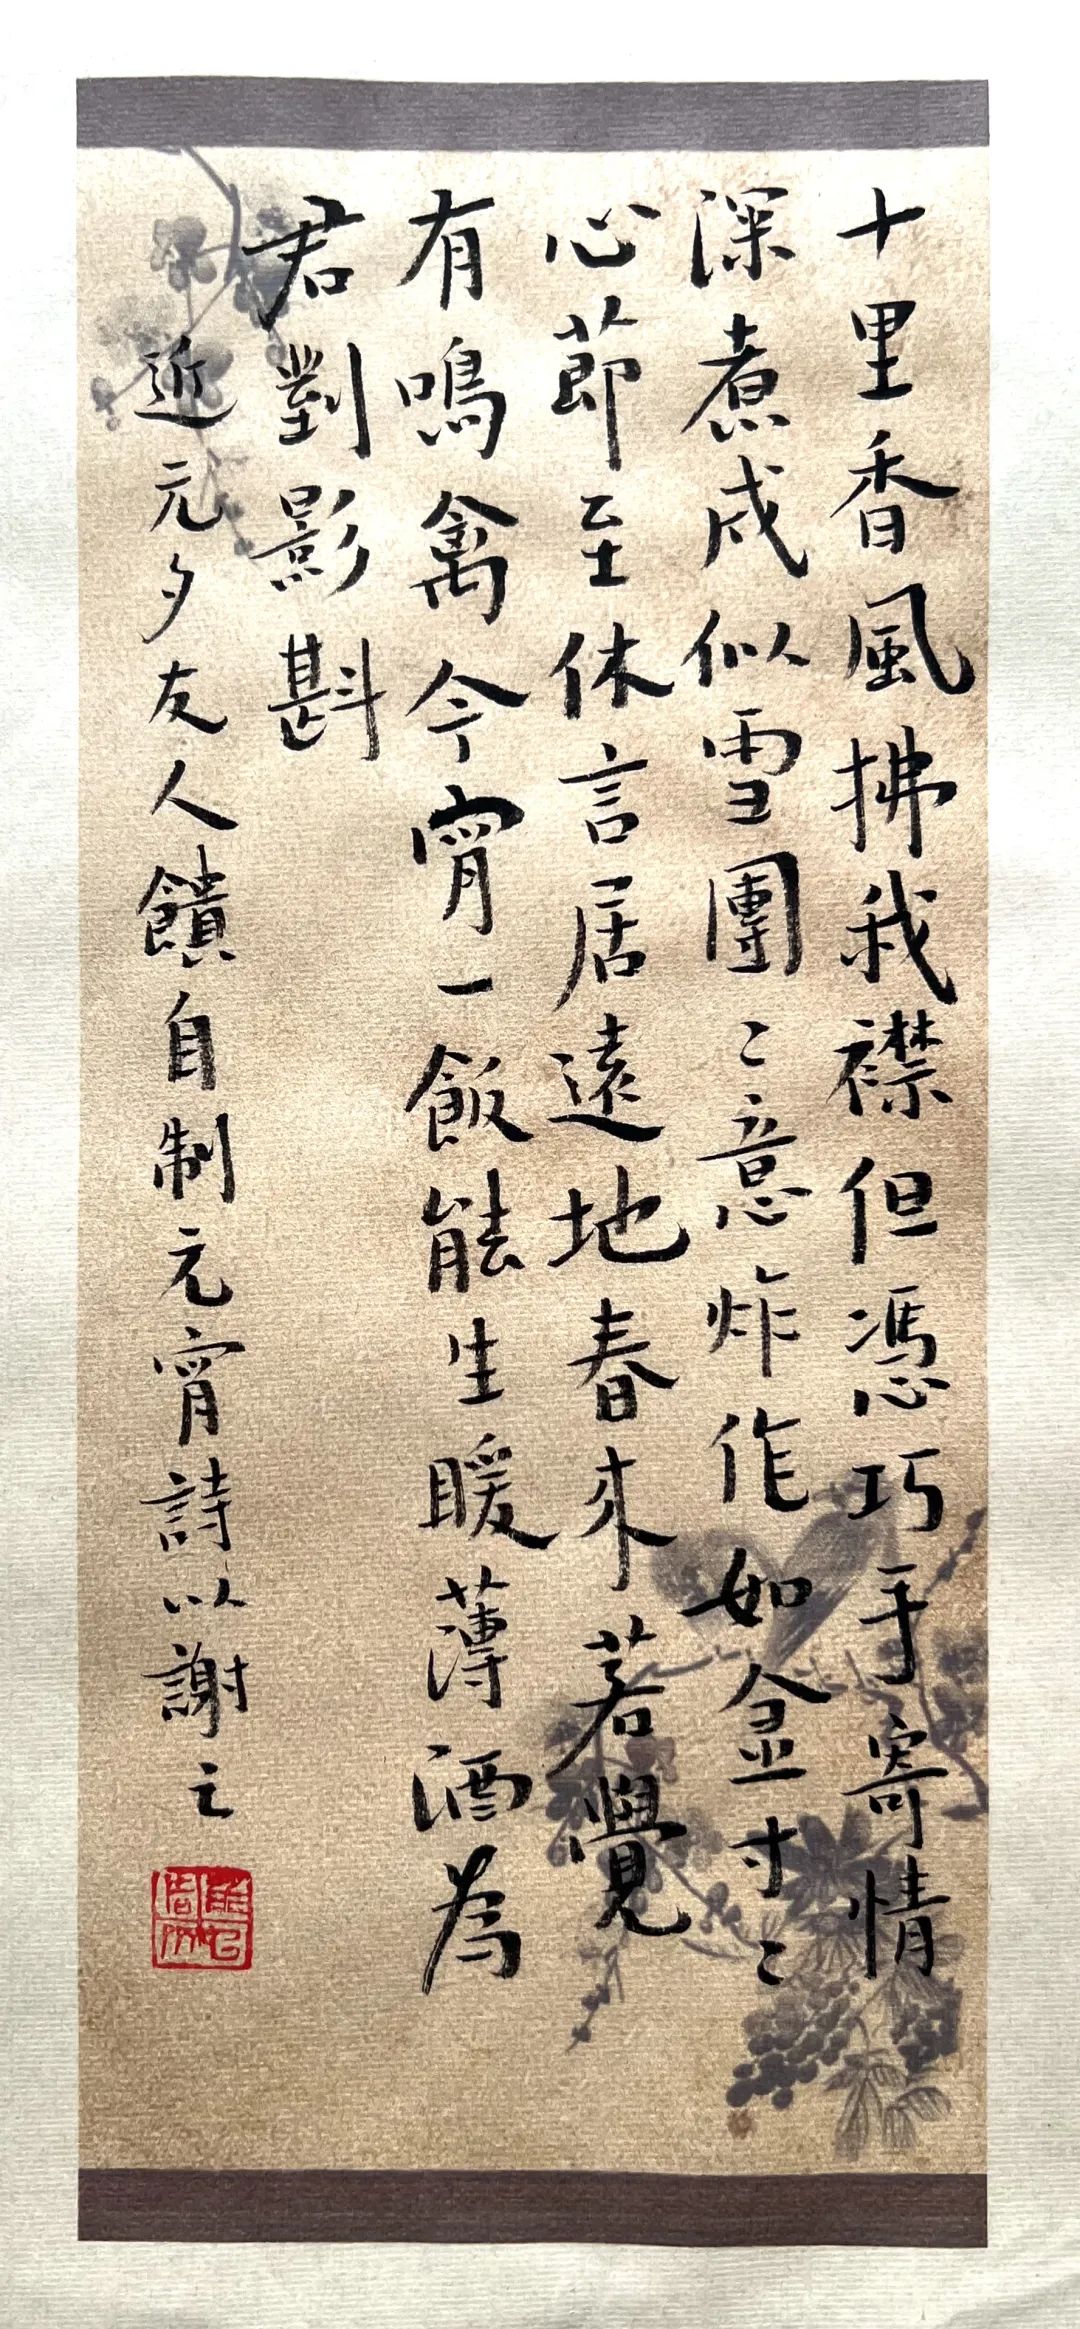 十里香風拂我襟但憑巧手寄情
深煮成似雪團〻意炸作如金寸〻
心節至休言居遠地春來若覺
有鳴禽今宵一飯能生暖薄酒為
君對影斟
近元夕友人饋自制元宵詩以謝之